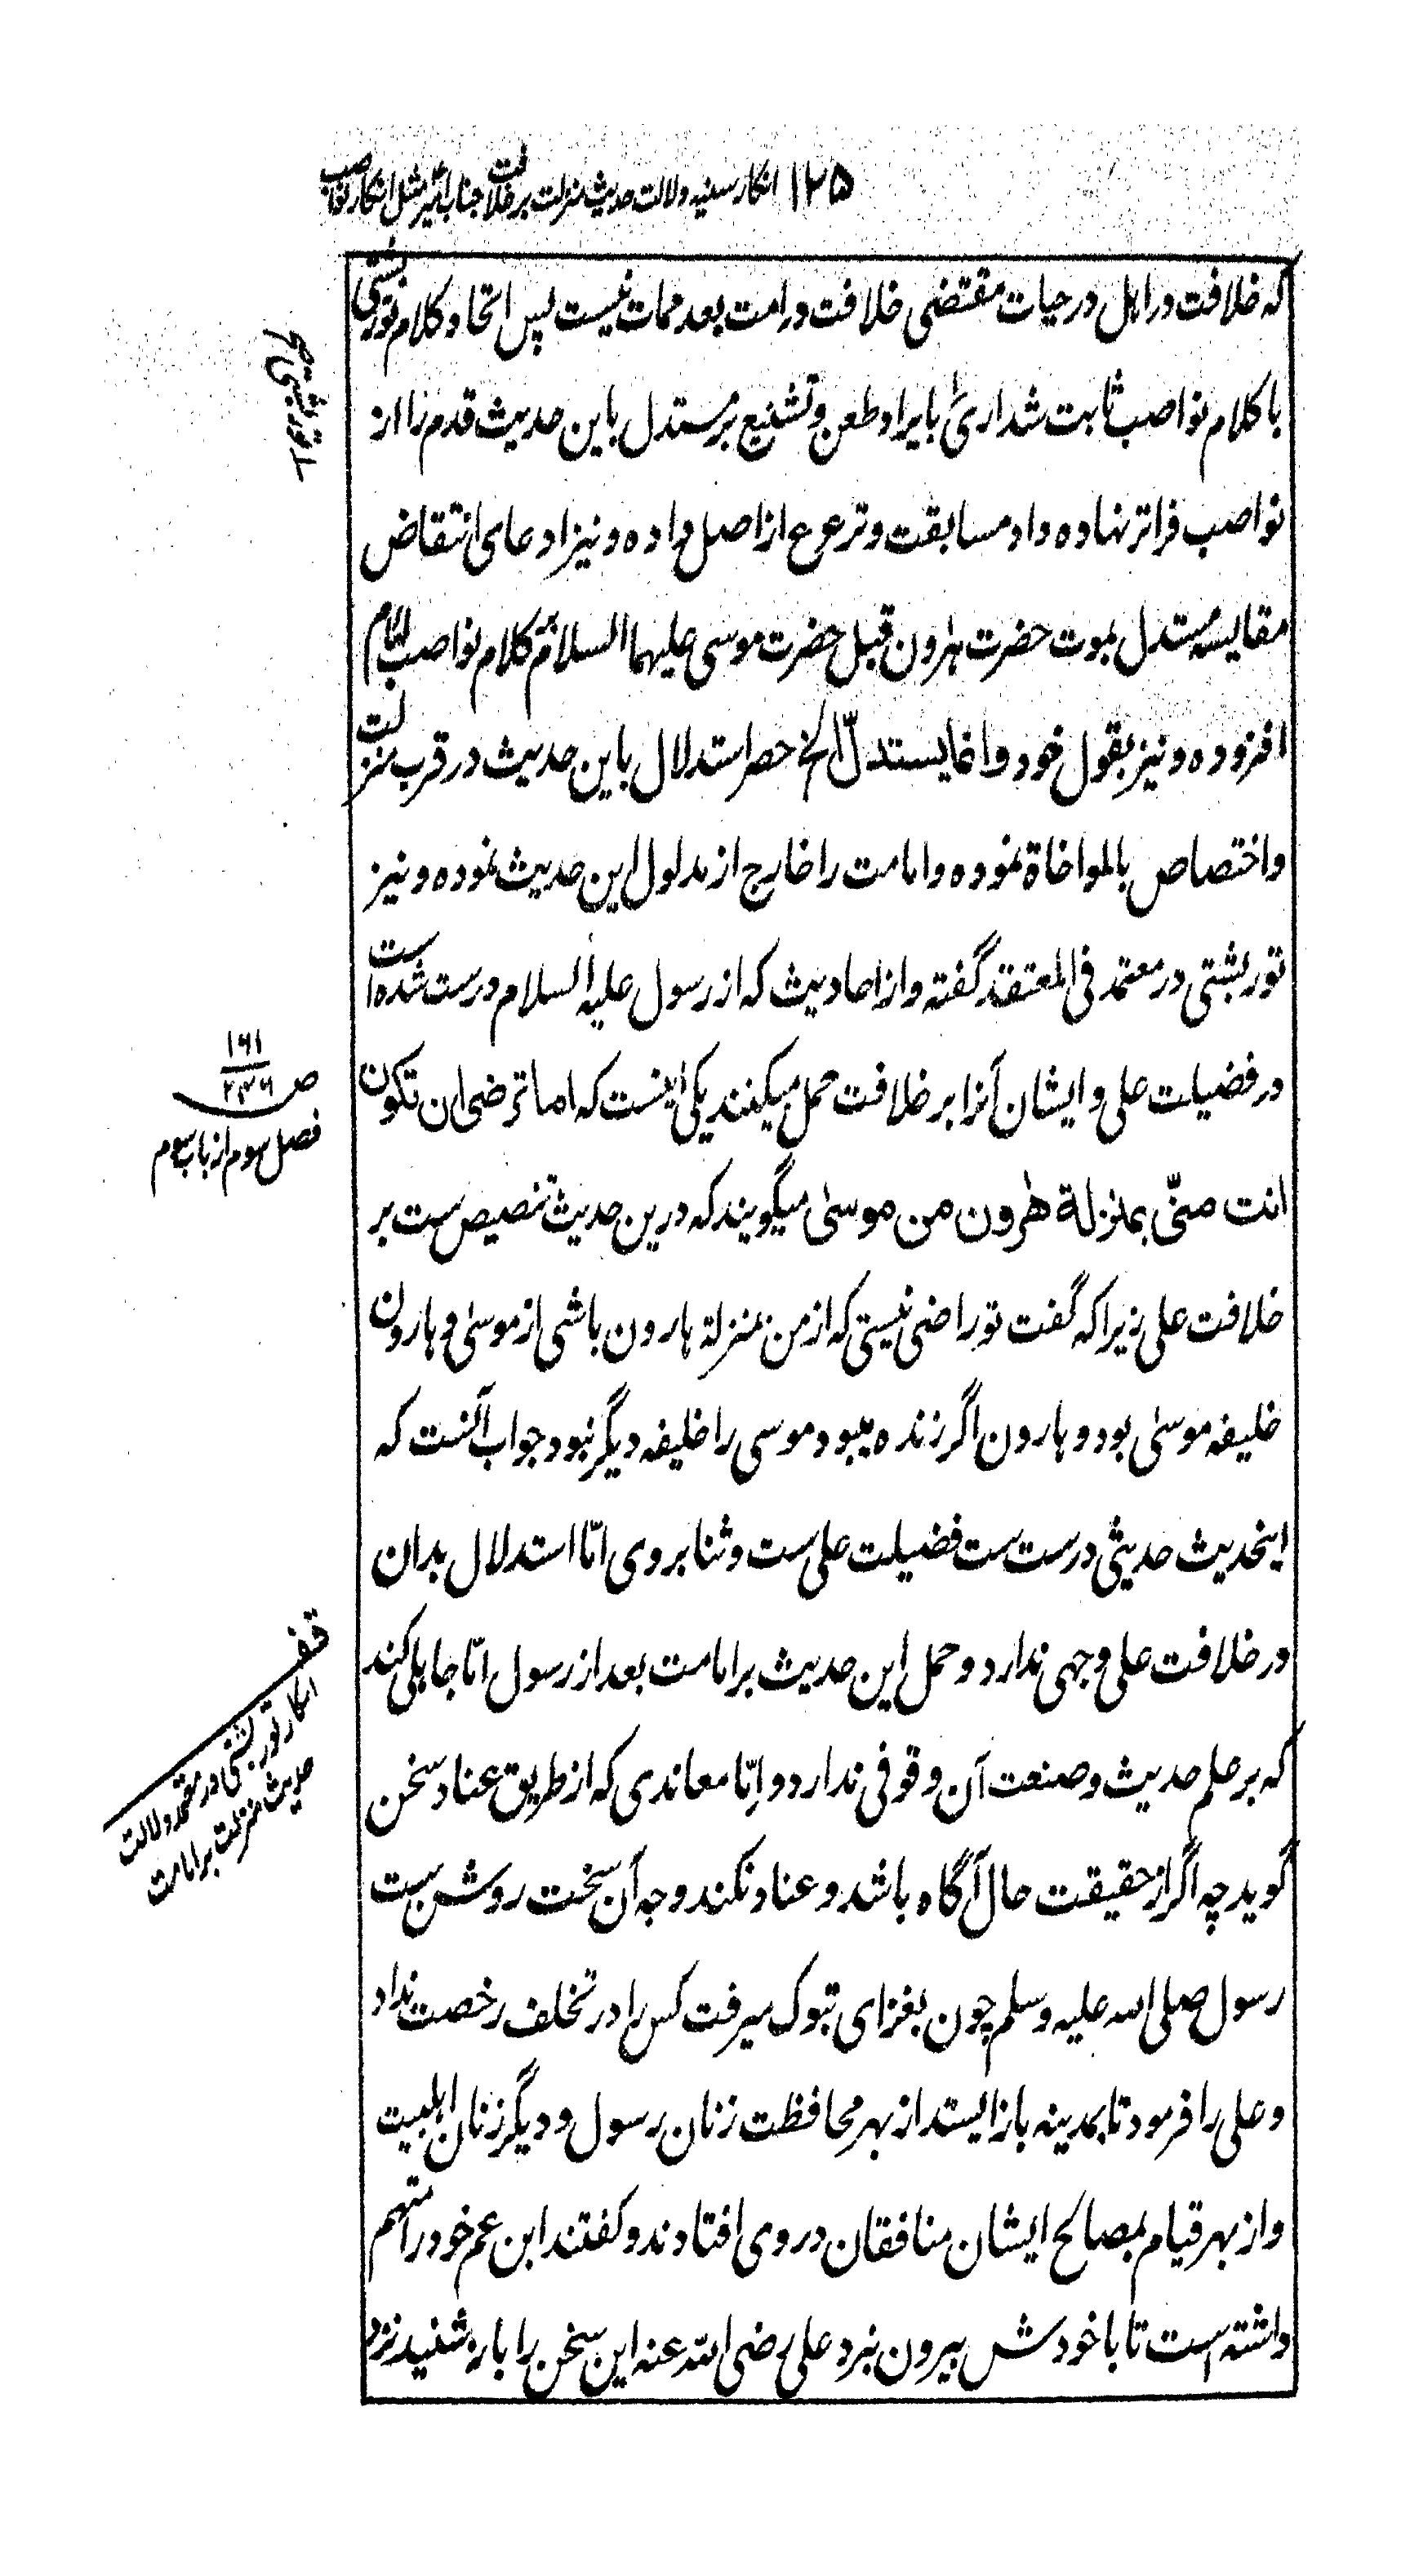 ۱۲۵ انکار سنیه دلالت حدیث منزلت بر خلافت جناب امیر مثل انکار نواصب
که خلافت در اہل در حیات مقتضی خلافت در امت بعد ممات نیست پس اتحاد کلام تورپشتی
با کلام نواصب ثابت شد اری بایراد طعن و تشنیع بر مستدل باین حدیث قدم را از
نواصب فراتر نهاده داد مسابقت و ترعرع از اصل داده و نیز ادعای انتقاض
مقایسه مستدل بموت حضرت هٰرون قبل حضرت موسی علیهما السلام بر کلام نواصب لئام
افزوده و نیز بقول خود وانما یستدلّ الخ حصر استدلال باین حدیث در قرب منزلت
و اختصاص بالمواخاة نموده و امامت را خارج از مدلول این حدیث نموده و نیز
تورپشتی در معتمد فی المعتقد گفته و از احادیث که از رسول علیه السلام درست شده است
در فضیلت علی و ایشان آنرا بر خلافت حمل میکنند یکی اینست که اما ترضی ان تکون
انت منّی بمنزلة هٰرون من موسیٰ میگویند که درین حدیث تنصیص ست بر
خلافت علی زیرا که گفت تو راضی نیستی که از من بمنزلۀ هارون باشی از موسیٰ و هارون
خلیفه موسیٰ بود و هارون اگر زنده میبود موسی را خلیفه دیگر نبود جواب آنست که
اینحدیث حدیثی درست ست فضیلت علی ست و ثنا بر وی امّا استدلال بدان
در خلافت علی وجهی ندارد و حمل این حدیث بر امامت بعد از رسول امّا جاهلی کند
که بر علم حدیث و صنعت آن وقوفی ندارد و اِمّا معاندی که از طریق عناد سخن
گوید چه اگر از حقیقت حال آگاه باشد و عناد نکند وجه آن سخت روشن ست
رسول صلی الله علیه وسلم چون بغزای تبوک میرفت کس را در تخلف رخصت نداد
و علی را فرمود تا بمدینه باز ایستد از بهر محافظت زنان رسول و دیگر زنان اہلبیت
و از بهر قیام بمصالح ایشان منافقان در وی افتادند و گفتند ابن عم خود را متهم
داشته است تا با خودش بیرون نبرد علی رضی الله عنه این سخن را باز شنید نزد
تورپشتی
ص ۱۶۱
فصل سوم از باب سوم
قف
انکار تورپشتی در معتمد دلالت
حدیث منزلت بر امامت